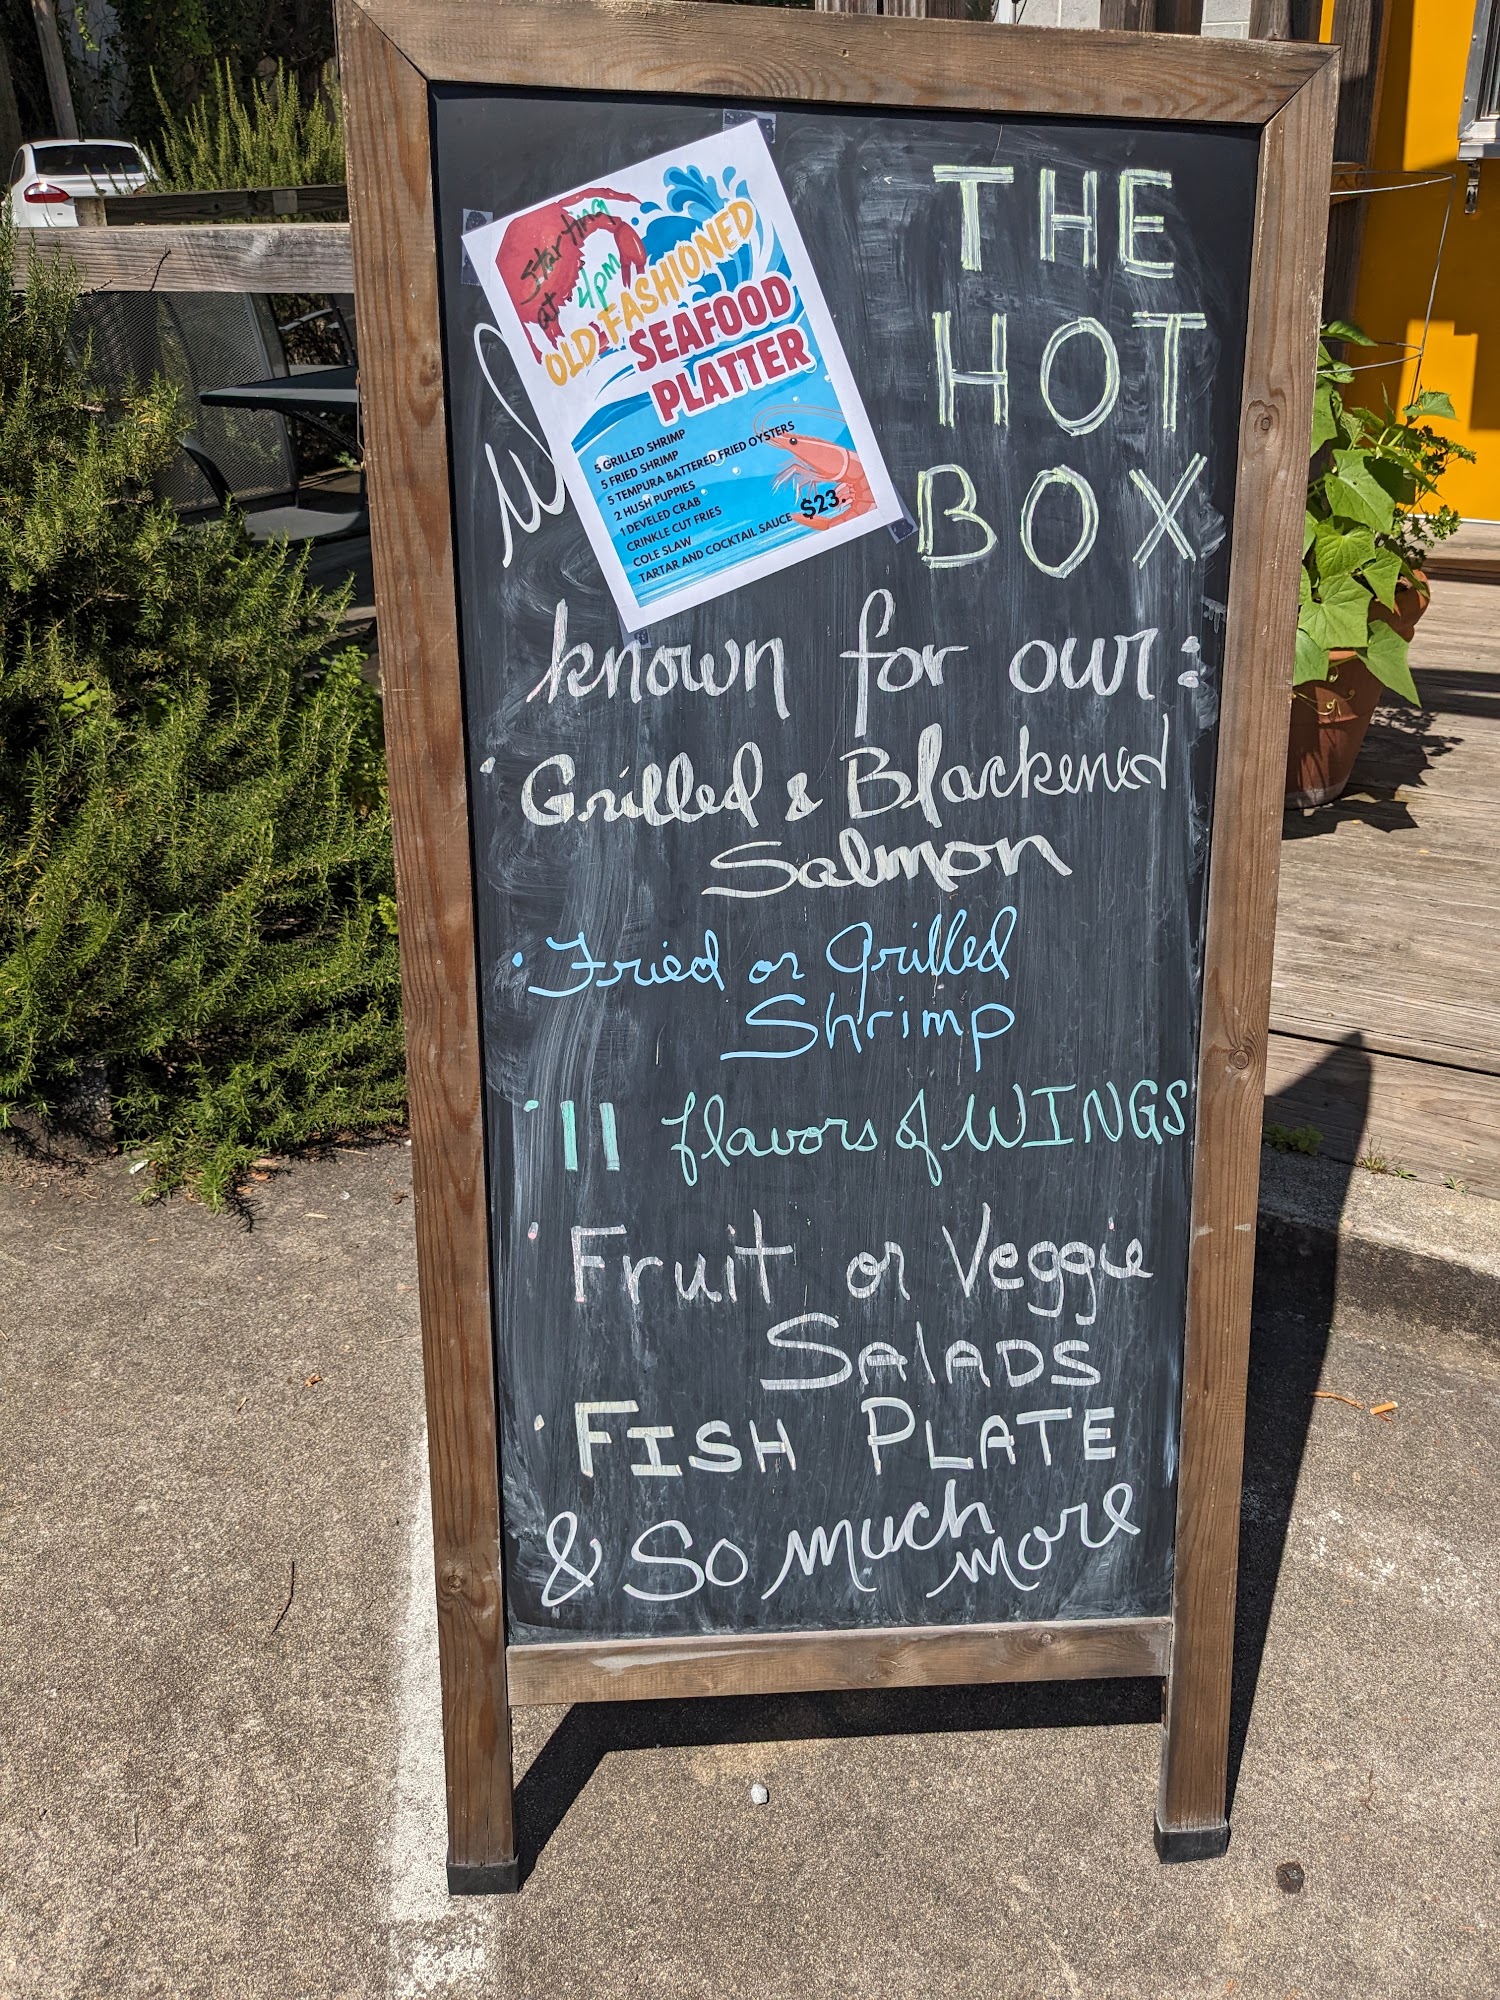 Starting
at 4pm
OLD FASHIONED
SEAFOOD
PLATTER
5 GRILLED SHRIMP
5 FRIED SHRIMP
5 TEMPURA BATTERED FRIED OYSTERS
2 HUSH PUPPIES
1 DEVELED CRAB
CRINKLE CUT FRIES
COLE SLAW
TARTAR AND COCKTAIL SAUCE
$23.
THE
HOT
BOX
known for our:
• Grilled & Blackened
Salmon
• Fried or Grilled
Shrimp
• 11 flavors of WINGS
• Fruit or Veggie
SALADS
• FISH PLATE
& So much
more